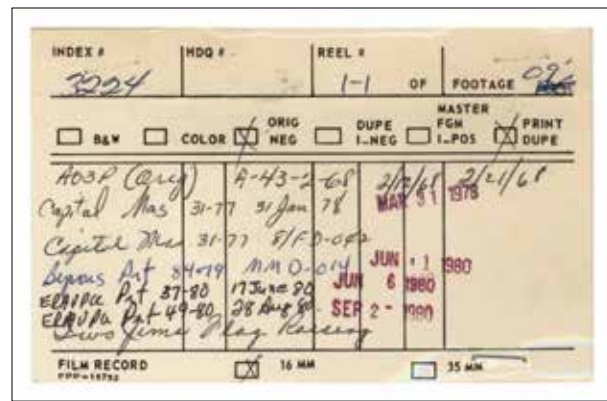 INDEX # HDQ # REEL #
3224 1-1 OF FOOTAGE
B&W COLOR ORIG NEG DUPE I-NEG MASTER FGM I-POS PRINT DUPE
AO3P (Orig) A-43-2-68 2/12/68 2/21/68
Capital Mas 31-77 31 Jan 78 MAR 31 1978
Capitol Mas 31-77 8/FD-042
Prt 84-79 MMO-014 JUN 11 1980
Prt 37-80 17 June 80 JUN 6 1980
Prt 49-80 28 Aug 80 SEP 2 - 1980
Iwo Jima Flag Raising
FILM RECORD 16 MM 35 MM